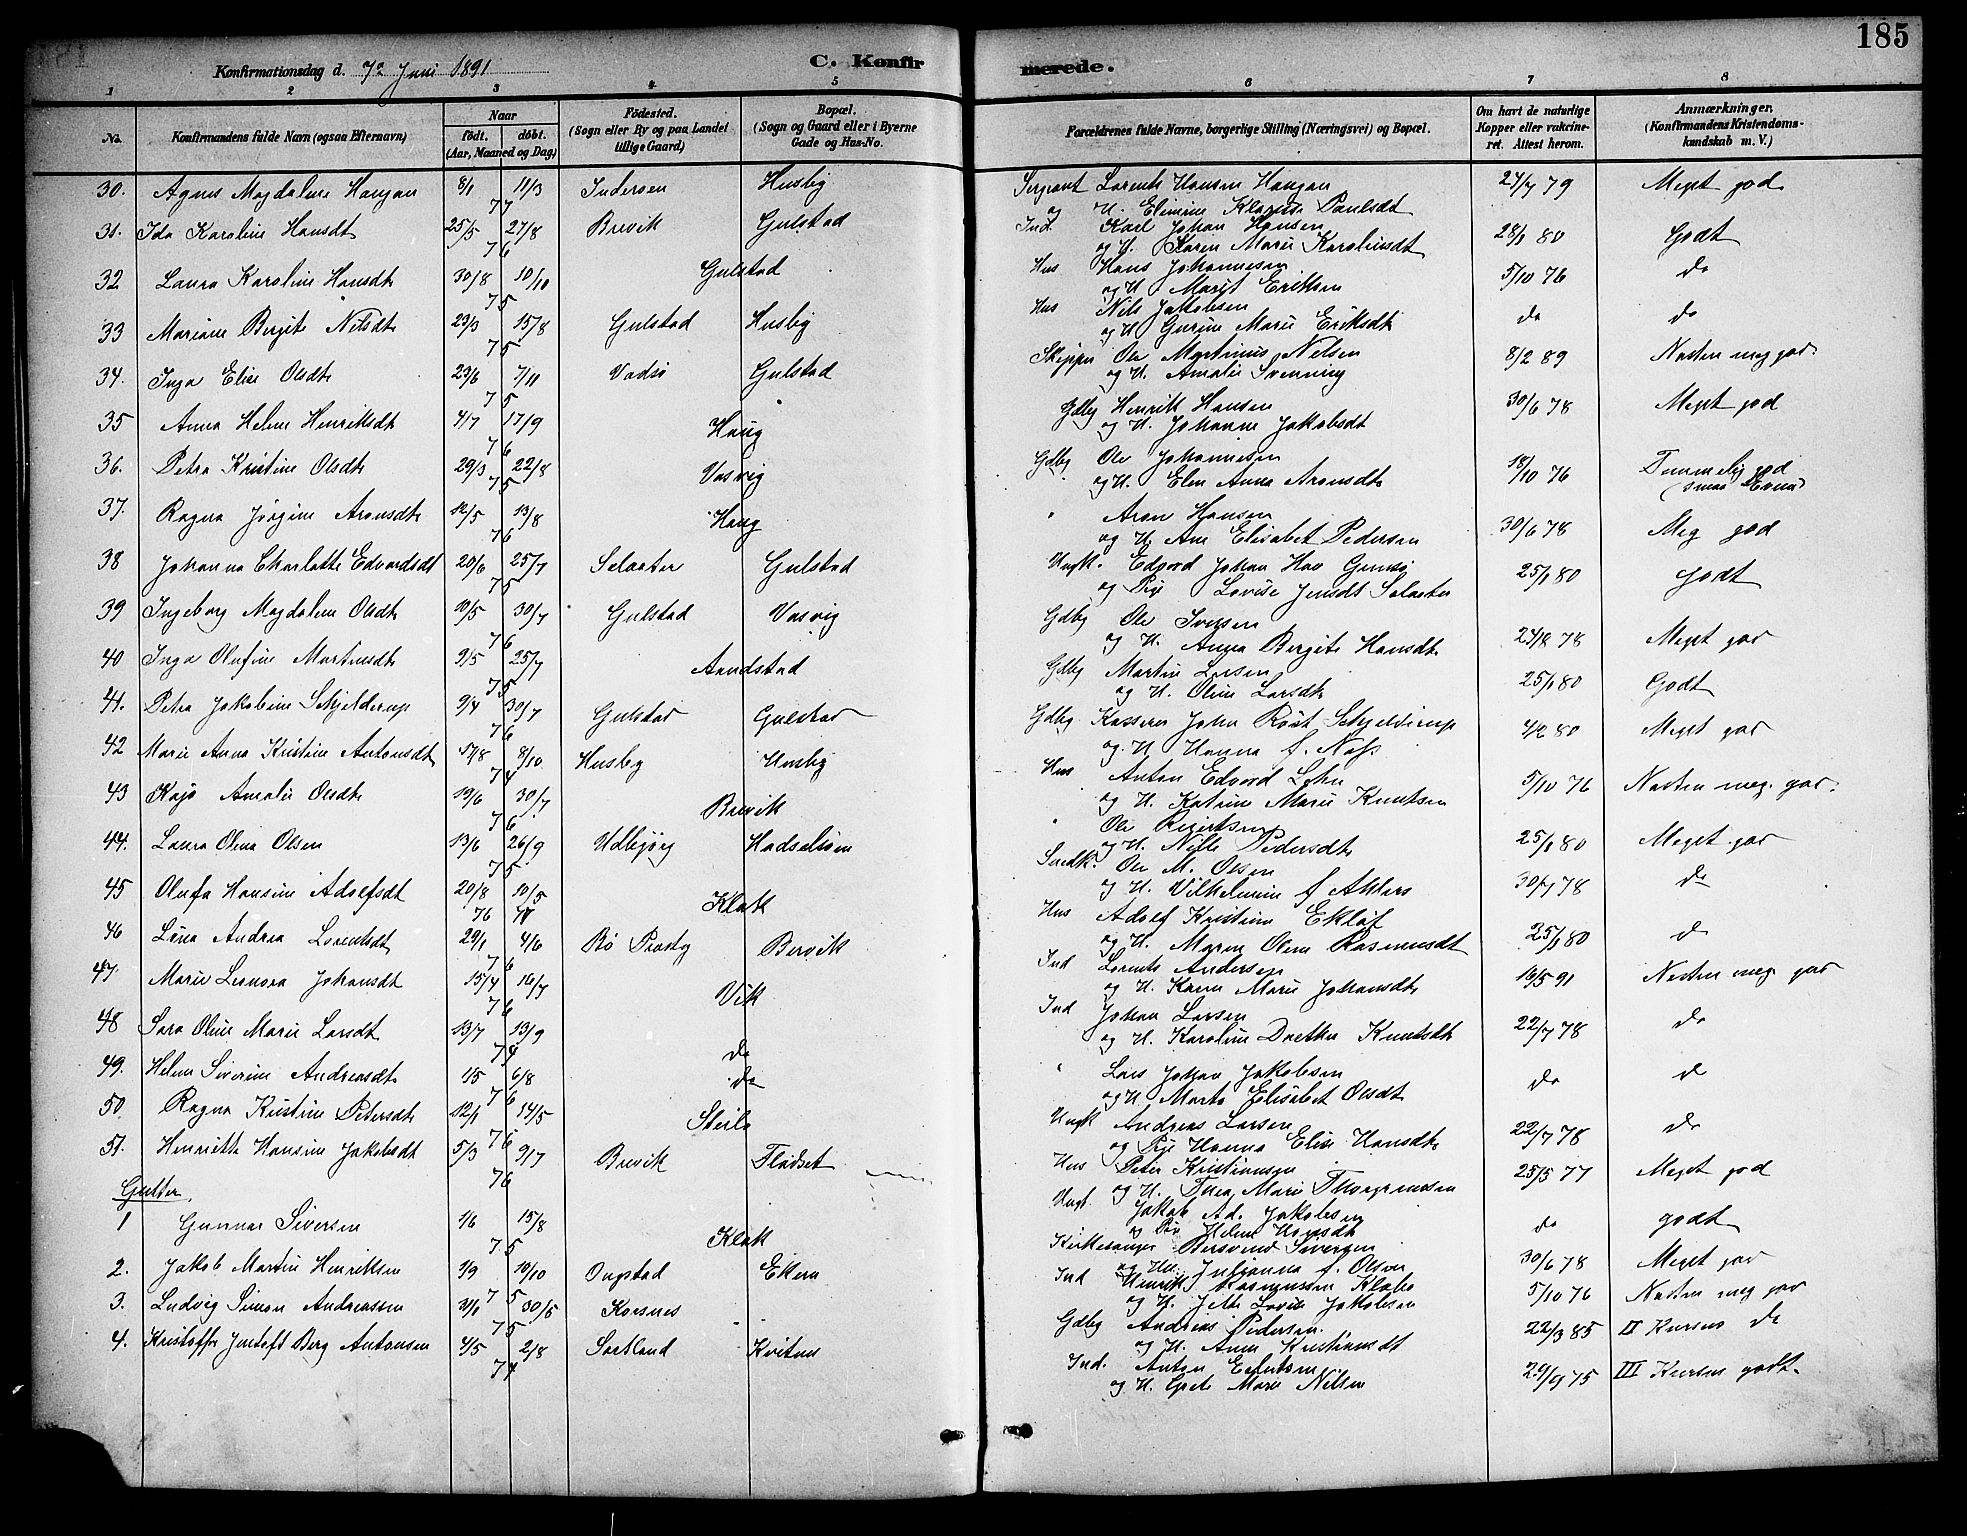 185
Konfirmationsdag d. 7de Juni 1891
C. Konfirmerede.
1 2 3 4 5 6 7 8
No. Konfirmandens fulde Navn (ogsaa Efternavn) Naar født. døbt. (Aar, Maaned og Dag) Fødested. (Sogn eller By og paa Landet tillige Gaard) Bopæl. (Sogn og Gaard eller i Byerne Gade og Hus-No. Forældrenes fulde Navne, borgerlige Stilling (Næringsvei) og Bopæl. Om havt de naturlige Kopper eller vakcineret. Attest herom. Anmærkninger. (Konfirmandens Kristendomskundskab m. V.)
30. Agnes Magdalene Haugan 8/1 11/3 77 Inderøen Husby Sergeant Lorents Hansen Haugan 24/7 79 Meget god
og H. Elenine Klarise Paulsdt
31. Ida Karoline Hansdt 25/5 27/8 76 Brevik Gulstad Ind. Karl Johan Hansen 28/1 80 Godt
og H. Karen Marie Karoliusdt
32 Laura Karoline Hansdt 30/8 10/10 75 Gulstad Hus Hans Johannesen 5/10 76 do
og H. Marit Eriksen
33 Mariane Bergite Nilsdt 23/3 15/8 75 Gulstad Husby Hus Nils Jakobsen do do
og H. Gurine Marie Eriksdt
34. Inga Elise Olsdt 23/6 7/11 75 Vadsø Gulstad Skipper Ole Martinus Nelsen 8/2 89 Næsten meg god.
og H. Amalie Svenning
35 Anna Helene Henriksdt 4/7 17/9 76 Haug Gdbg Henrik Hansen 30/6 78 Meget god
og H. Johanne Jakobsdt
36. Petra Kristine Olsdt 29/3 22/8 75 Vasvig Gdbg Ole Johannesen 18/10 76 Temmelig god
og H. Elen Anna Aronsdt (smaa Evner)
37. Ragna Jørgine Aronsdt 12/5 13/8 76 Haug " Aron Hansen 30/6 78 Meg god
og H. Ane Elisabet Pedersen
38 Johanna Charlotte Edvardsdt 20/6 25/7 75 Selnater Gulstad Ungk. Edvard Johan 25/1 80 godt
og Pige Lovise Jensdt
39 Ingeborg Magdalene Olsdt 10/5 30/7 76 Gulstad Vasvig Gdbg Ole Iversen 24/8 78 Meget god
og H. Anna Bergite Hansdt
40 Inga Olufine Martinsdt 9/5 25/7 75 Aandstad Gdbg Martin Larsen 25/1 80 Godt
og H. Oline Larsdt
41. Petra Jakobine Schjelderup 9/4 30/7 76 Gulstad Gulstad Gdbg Kasserer John Røst Schjelderup 4/2 80 Meget god
og H. Hanna f. Næss
42 Marie Anna Kristine Antonsdt 17/8 8/10. 74 Husby Husby Hus Anton Edvard Lohn 5/10 76 Næsten meg. god.
og H. Katrine Marie Knutsen
43 Kaja Amalie Olsdt 19/6 30/7 76 Brevik " Ole Reiertsen 25/1 80 Meget god
og H. Nille Pedersdt
44. Laura Olena Olsen 13/6 26/9 75 Udbjørg Hadseløen Snedk. Ole M. Olsen 30/7 78 do
og H. Vilhelmine f. Ahlers
45 Olufa Hansine Adolfsdt 20/8 76 10/5 77 Klak Hus Adolf Kristian Ekløf 25/1 80 do
og H. Maren Olene Rasmusdt
46 Lina Andrea Lorentsdt 29/1 4/6 76 Bø Prestg Bervik Ind Lorents Andersen 16/5 91 Næsten meg god
og H. Karen Marie Johansdt
47. Marie Leonora Johansdt 15/4 16/7 76 Vik Ind Johan Larsen 22/7 78 do
og H. Karoline Dorthea Knutsdt
48 Sara Oline Marie Larsdt 13/7 13/9 74 do " Lars Johan Jakobsen do do
og H Marta Elisabet Olsdt
49. Helene Siverine Andreasdt 1/5 6/8 76 do Ungk Andreas Larsen 22/7 78 do
og Pige Hanna Elise Hansdt
50. Ragna Kristine Petersdt 12/1 14/5 76 Steile Hus Peter Kristiansen 25/5 77 Meget god
og H. Thea Marie
51. Henriette Hansine Jakobsdt 5/3 9/7 76 Brevik Flødset Ungk Jakob Ad. Jakobsen do godt
og Pige Helene Hansdt
Gutter.
1 Gunnar Siversen 1/6 15/8 75 Klak Kirkesanger Bersvend Siversen 30/6 78 Meget god
og Hu. Julianna f. Olsen
2. Jakob Martin Henriksen 1/9 10/10 75 Ongstad Ekren Ind Henrik Rasmussen Klabo 5/10 76 Næsten meg god
og H. Jette Lovise Jakobsen
3. Ludvig Simon Andreassen 31/1 30/5 75 Korsnes Gdbg Andreas Pedersen. 22/3 85 II Kursus do
og H. Anne Kristiansdt
4. Kristoffer Jentoft Berg Antonsen 4/5 2/8 74 Sortland Kvitnes Ind. Anton 29/9 75 III Kursus godt.
og H. Grete Marie Nilsen